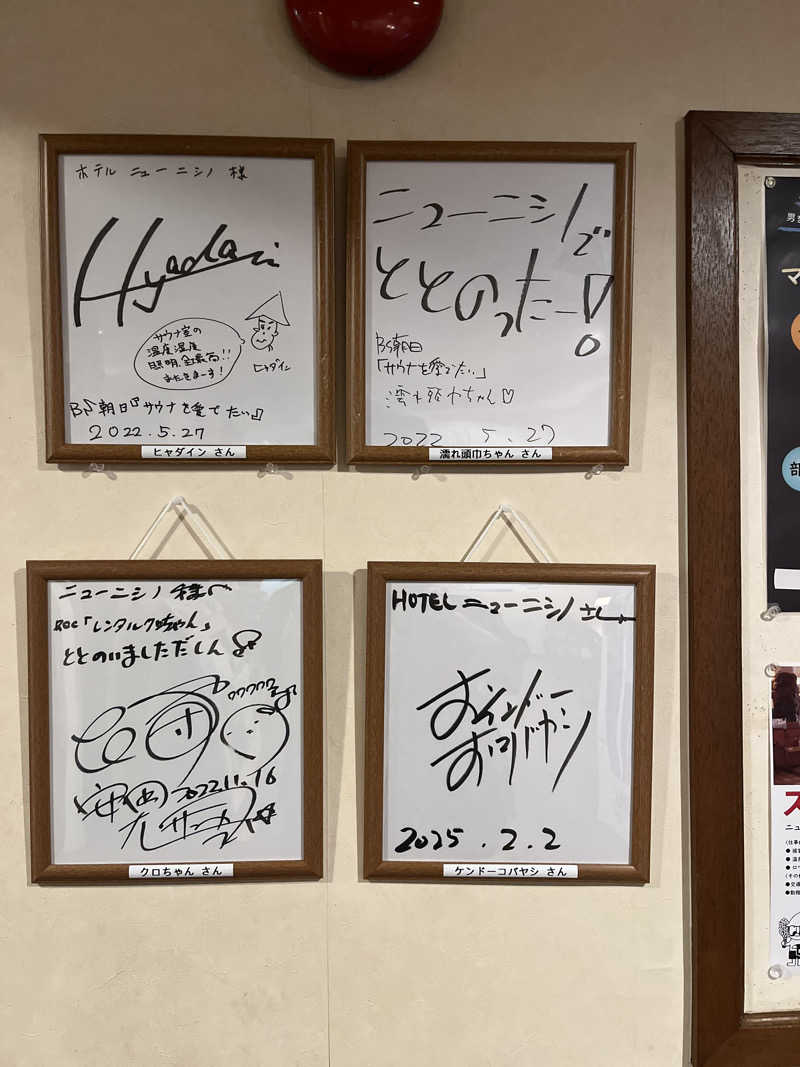 ホテル ニューニシノ 様
Hyadain
サウナ室の
温度湿度
照明、全最高!!
またきまーす!
ヒャダイン
BS朝日『サウナを愛でたい』
2022.5.27
ヒャダイン さん
ニューニシノで
ととのったー!
BS朝日
「サウナを愛でたい」
濡れ頭巾ちゃん♡
2022 5.27
濡れ頭巾ちゃん さん
ニューニシノ様へ
「レンタルクロちゃん」
ととのいましただしん
ワワワワ
安田
2022.11.16
クロちゃん さん
HOTEL ニューニシノさんへ
ケンドー
コバヤシ
2025.2.2
ケンドーコバヤシ さん
男
マ
部
ス
ニュ